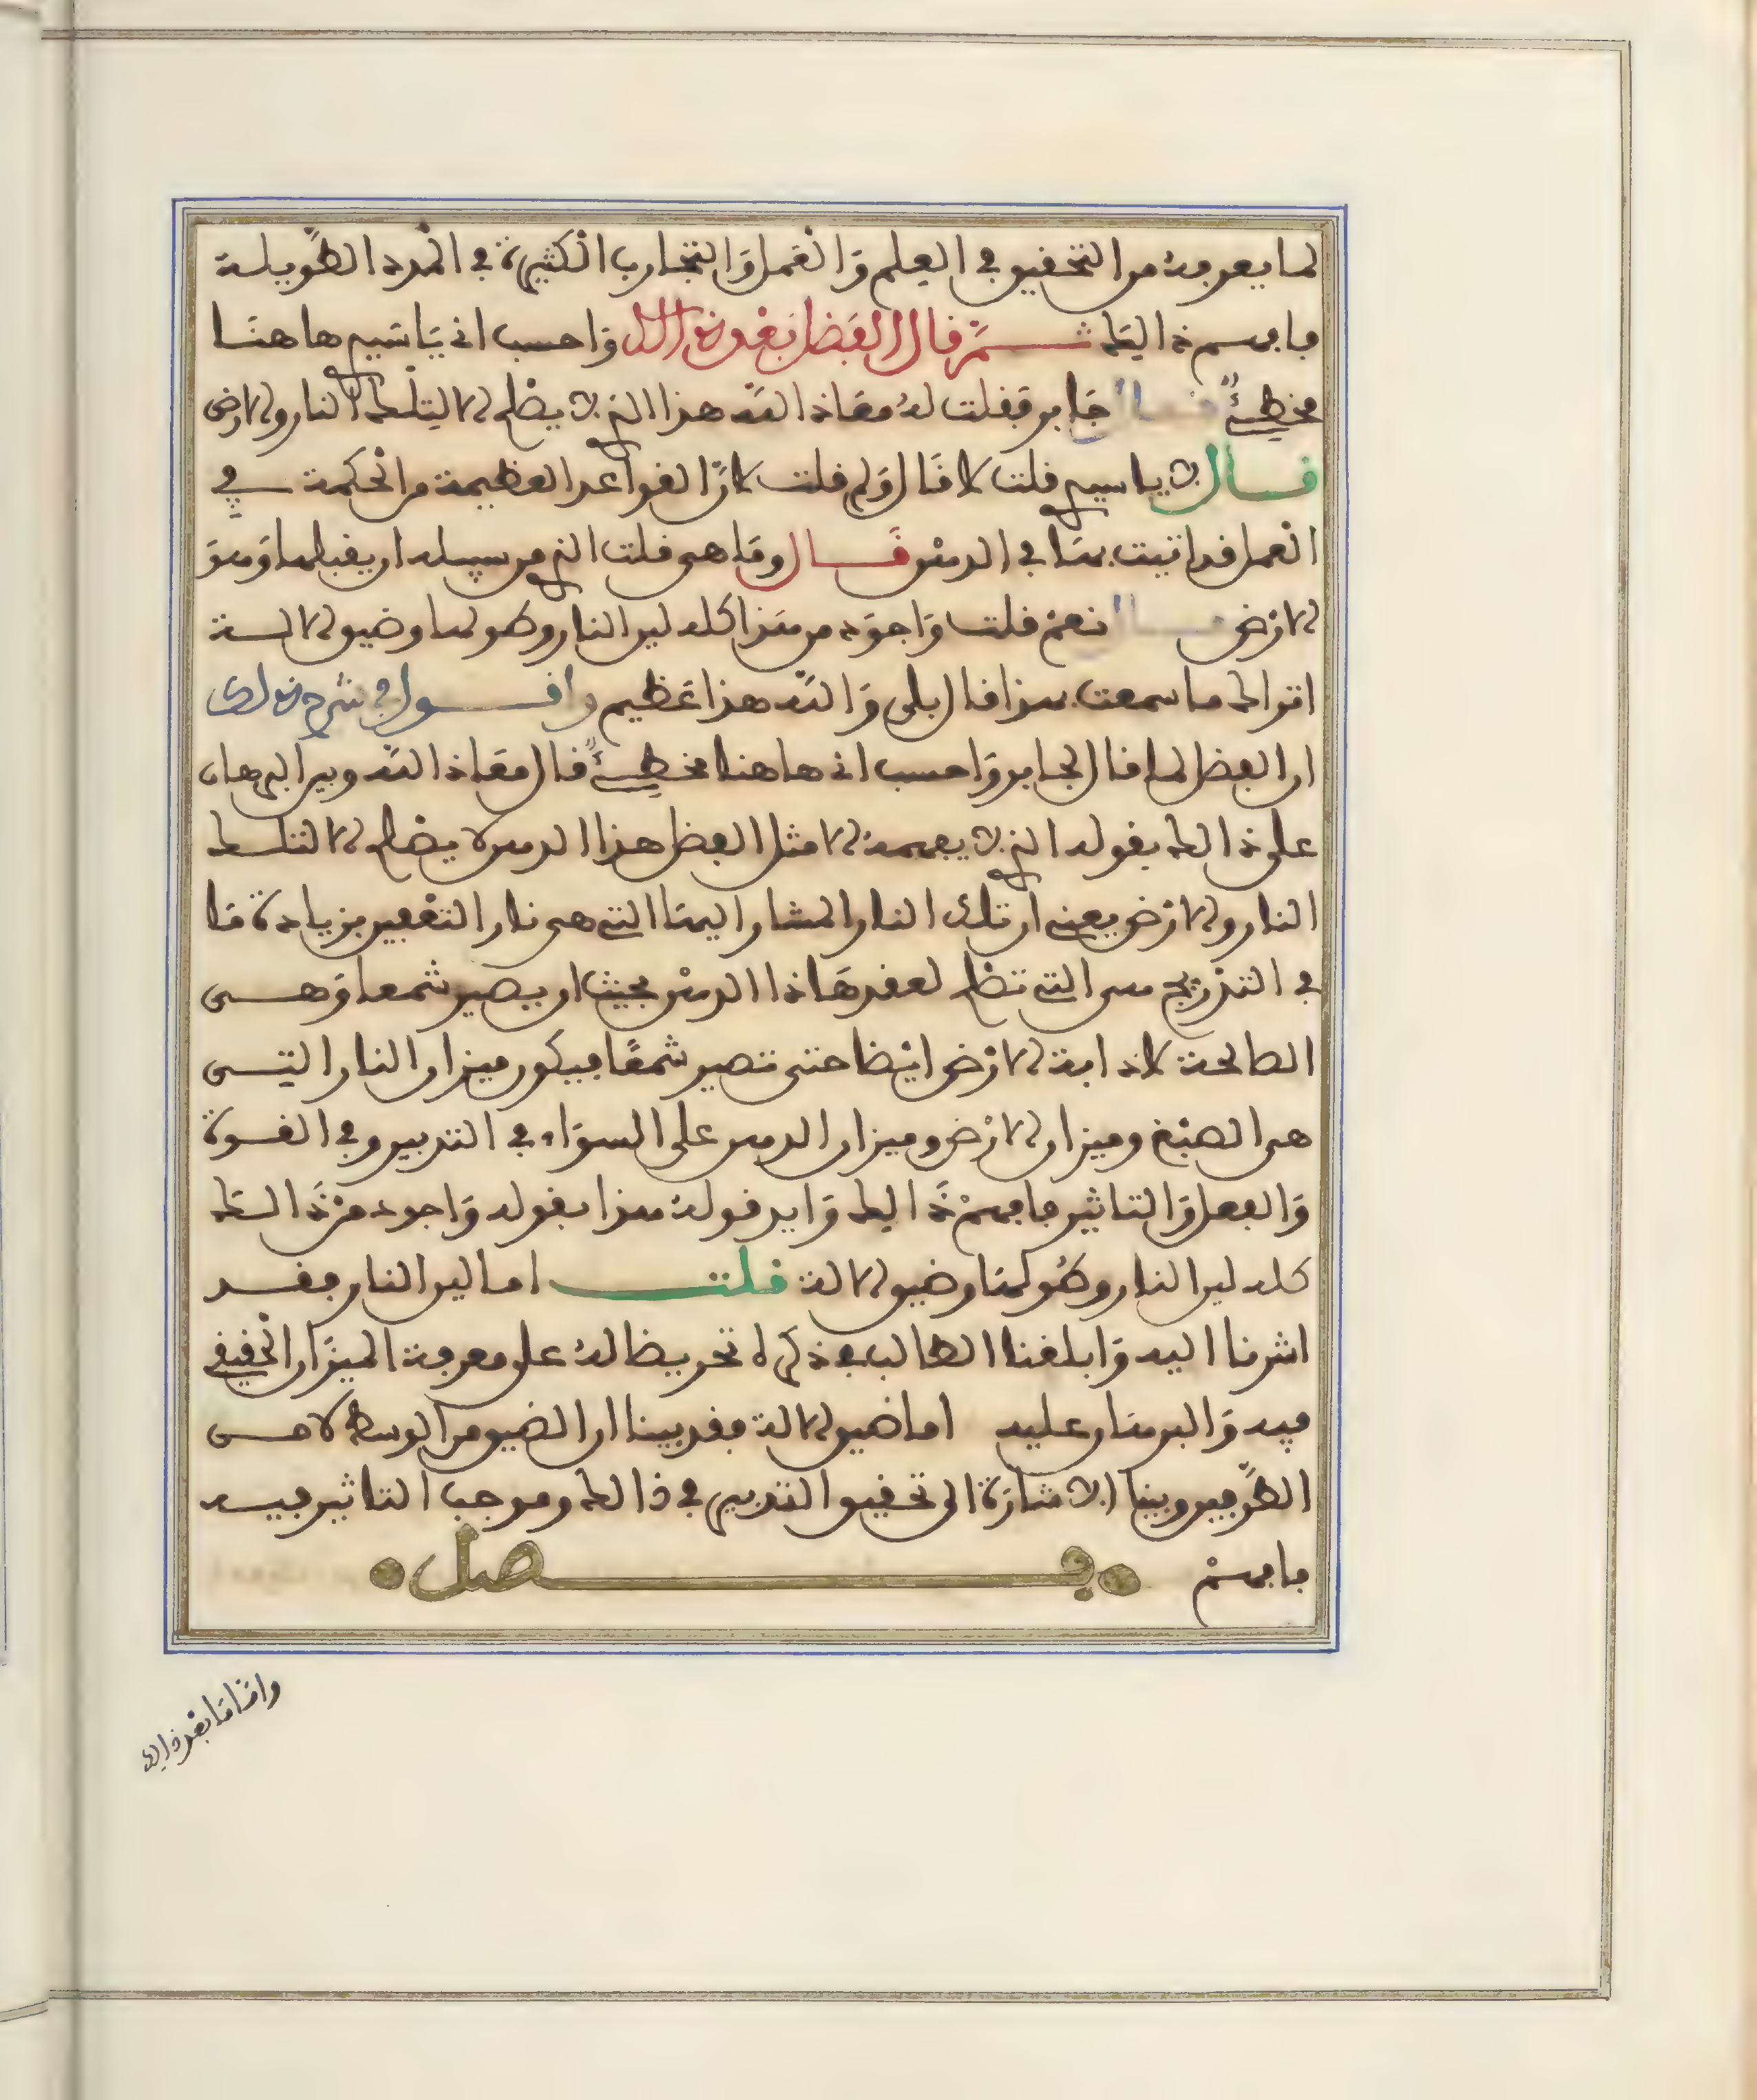 لما يعرفه من التحقيق في العلم وَالْعَمل وَالتجَارب الكثيرة في المدد الطويلة
فافهم ذالك ثم قال الفضل بعد ذالك وَاحسب انى يَا سَيدي هاهنَا
مخطئ قال جَابر فقلت لهُ معَاذ الله هذا الذي لا يصلح الا لتلك النار والارض
قال لا يا سيدي قلت لا قَال وَلم قلت لانَّ القواعد العظيمة من الحكمة في
العمل قد اتيت بهَا في الدهن قال ومَا هي قلت الذي من سبيله ان يقبلها وَهوَ
الارْض قال نعم قلت وَاجوَد من هَذا كله لين النار وطولها وضيق الالــة
اتراك ما سمعت بهذا قال بلى وَالله هذا عَظيم واقول في شرح ذلك
ان الفضل لما قال لجابر وَاحسب انى هاهنا مخطئ قال معَاذ الله وبين البرهان
على ذالك بقوله الذي لا يفهمه الا مثل الفضل هذا الدهن لا يصلح الا لتلك
النار والارْض يعنى ان تلك النار المشار اليهَا التي هي نار التعفين بزيادة مَا
في التدْريج هى التي تصلح لعقد هَاذا الدهْن بحيث ان يصير شمعا وَهــى
الصالحة لاذابة الارْض ايْضا حتى تصير شمعًا فيكون ميزان النار التــى
هى الصبْغ وميزان الارْض وميزان الدهن على السوَاء في التدبير وفي القــوة
وَالفعل وَالتاثير فافهمْ ذَالك وَايد قولهُ هذا بقوله وَاجود منْ ذَالك
كله لين النار وطُولهَا وضيق الالة قلت اما لين النار فقد
اشرنا اليه وَابلغنا الطالب في ذكره تحريضا لهُ على معرفة الميزَان الحقيقي
فيه وَالبرهَان عليه اما ضيق الالة فقد بينا ان الضيق من الوسط لا مــن
الطَّرفين وبينا الاشارَة الى تحقيق التدبير في ذالك وموجب التاثير فيــه
فافهمْ فصل
وامَّا مَا بعْد ذالك